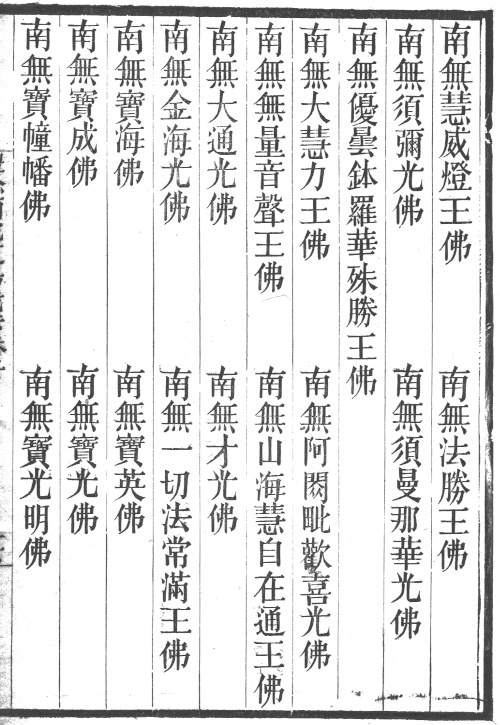 南無慧威燈王佛　南無法勝王佛
南無須彌光佛　南無須曼那華光佛
南無優曇鉢羅華殊勝王佛
南無大慧力王佛　南無阿閦毗歡喜光佛
南無無量音聲王佛　南無山海慧自在通王佛
南無大通光佛　南無才光佛
南無金海光佛　南無一切法常滿王佛
南無寶海佛　南無寶英佛
南無寶成佛　南無寶光佛
南無寶幢幡佛　南無寶光明佛